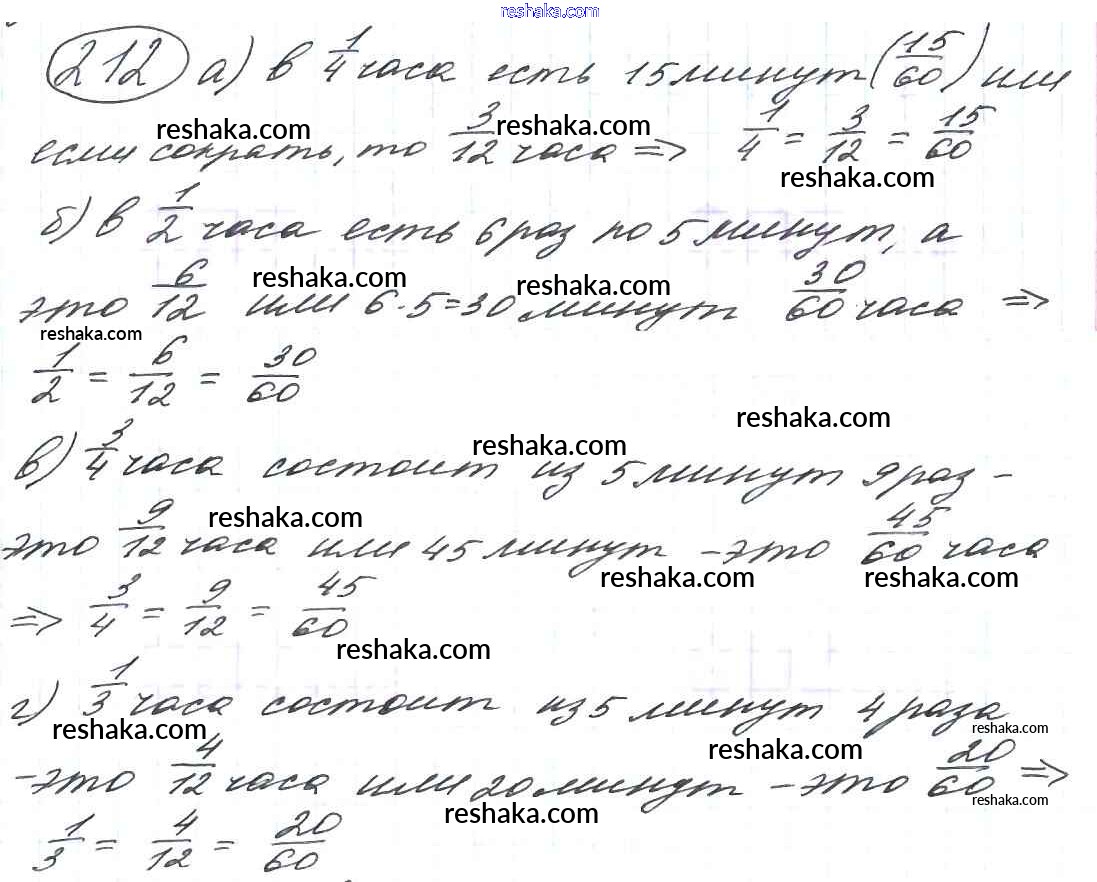 reshaka.com
212 а) в 1/4 часа есть 15 минут (15/60) или
reshaka.com reshaka.com
если сократь, то 3/12 часа => 1/4 = 3/12 = 15/60
reshaka.com
б) в 1/2 часа есть 6 раз по 5 минут, а
reshaka.com reshaka.com
это 6/12 или 6·5=30 минут 30/60 часа =>
reshaka.com
1/2 = 6/12 = 30/60
reshaka.com
reshaka.com
в) 3/4 часа состоит из 5 минут 9 раз -
reshaka.com
это 9/12 часа или 45 минут - это 45/60 часа
reshaka.com reshaka.com
=> 3/4 = 9/12 = 45/60
reshaka.com
г) 1/3 часа состоит из 5 минут 4 раза
reshaka.com reshaka.com
reshaka.com
- это 4/12 часа или 20 минут - это 20/60 =>
reshaka.com reshaka.com
1/3 = 4/12 = 20/60